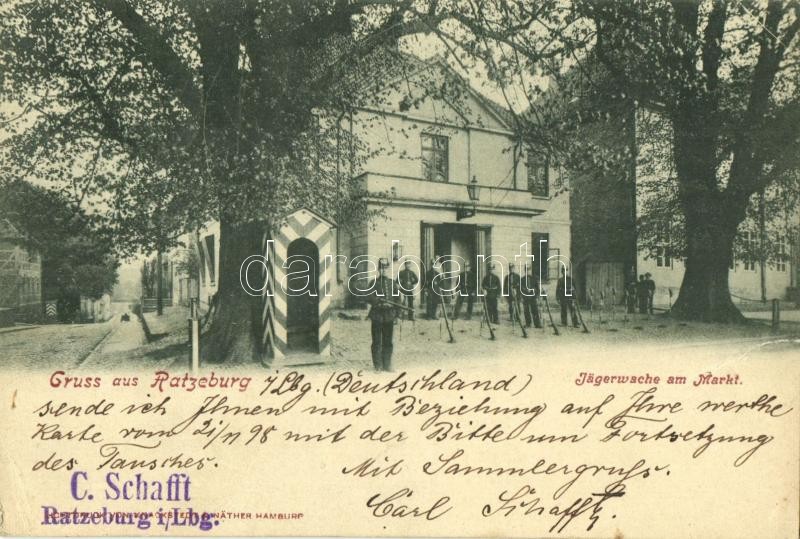 darabanth
Gruss aus Ratzeburg i/Lbg. (Deutschland)
Jägerwache am Markt.
sende ich Ihnen mit Beziehung auf Ihre werthe
Karte vom 21/11 98 mit der Bitte um Fortsetzung
des Tausches. Mit Sammlergruss.
C. Schafft
Carl Schafft
Ratzeburg i/Lbg.
LICHTDRUCK VON KNACKSTEDT & NÄTHER HAMBURG